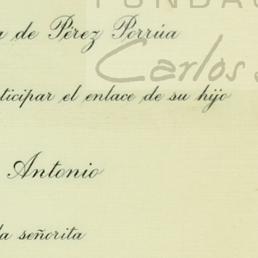 FUNDAC
Carlos
a de Pérez Porrúa
ticipar el enlace de su hijo
Antonio
la señorita